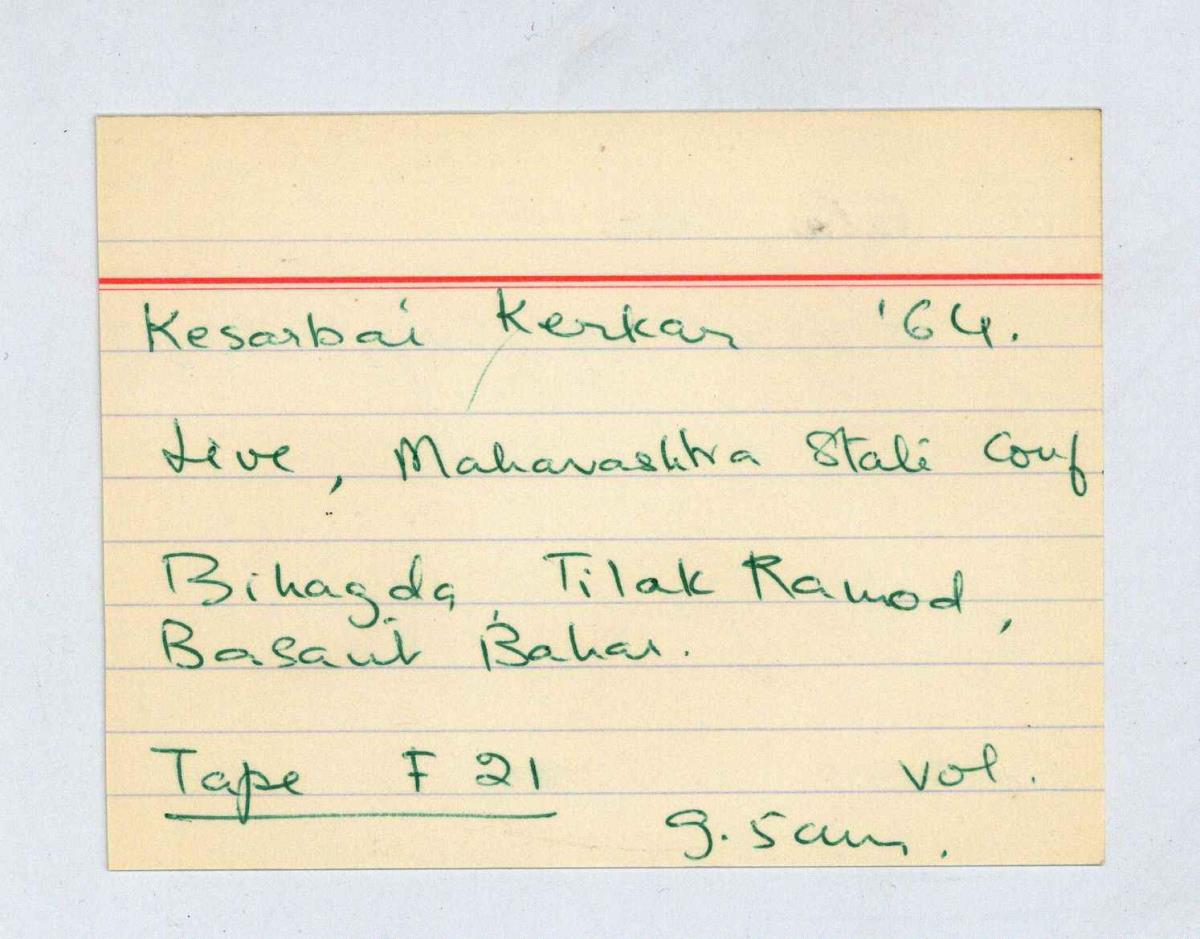 Kesarbai Kerkar '64.
Live, Maharashtra State Conf
Bihagda, Tilak Kamod,
Basant Bahar.
Tape F 21 Vol.
G. Sam.